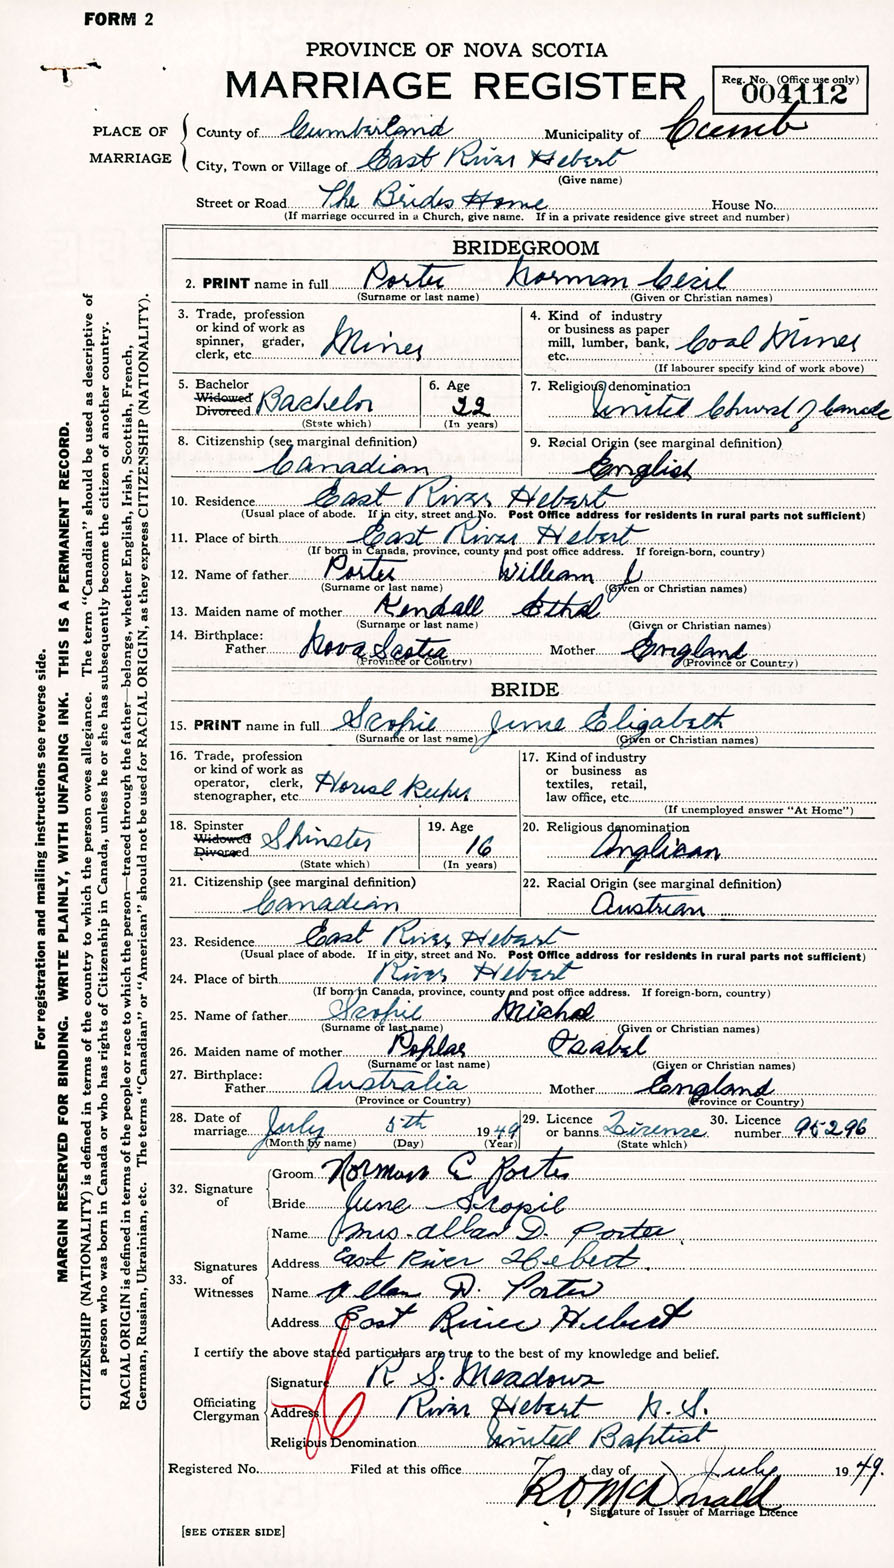 FORM 2
PROVINCE OF NOVA SCOTIA
MARRIAGE REGISTER
Reg. No. (Office use only)
004112
PLACE OF MARRIAGE
County of Cumberland Municipality of Cumb
City, Town or Village of East River Hebert
(Give name)
Street or Road The Brides Home House No.
(If marriage occurred in a Church, give name. If in a private residence give street and number)
BRIDEGROOM
2. PRINT name in full Porter Norman Cecil
(Surname or last name) (Given or Christian names)
3. Trade, profession or kind of work as spinner, grader, clerk, etc. Miner
4. Kind of industry or business as paper mill, lumber, bank, etc. Coal Mines
(If labourer specify kind of work above)
5. Bachelor Widowed Divorced Bachelor
(State which)
6. Age 22
(In years)
7. Religious denomination
United Church of Canada
8. Citizenship (see marginal definition)
Canadian
9. Racial Origin (see marginal definition)
English
10. Residence East River Hebert
(Usual place of abode. If in city, street and No. Post Office address for residents in rural parts not sufficient)
11. Place of birth East River Hebert
(If born in Canada, province, county and post office address. If foreign-born, country)
12. Name of father Porter William J
(Surname or last name) (Given or Christian)
13. Maiden name of mother Kendall Ethel
(Surname or last name) (Given or Christian names)
14. Birthplace:
Father Nova Scotia Mother England
(Province or Country) (Province or Country)
BRIDE
15. PRINT name in full Scopie June Elizabeth
(Surname or last name) (Given or Christian names)
16. Trade, profession or kind of work as operator, clerk, stenographer, etc. House Keeper
17. Kind of industry or business as textiles, retail, law office, etc.
(If unemployed answer "At Home")
18. Spinster Widowed Divorced Spinster
(State which)
19. Age 16
(In years)
20. Religious denomination
Anglican
21. Citizenship (see marginal definition)
Canadian
22. Racial Origin (see marginal definition)
Austrian
23. Residence East River Hebert
(Usual place of abode. If in city, street and No. Post Office address for residents in rural parts not sufficient)
24. Place of birth River Hebert
(If born in Canada, province, county and post office address. If foreign-born, country)
25. Name of father Scopie Michal
(Surname or last name) (Given or Christian names)
26. Maiden name of mother Poplar Isabel
(Surname or last name) (Given or Christian names)
27. Birthplace:
Father Australia Mother England
(Province or Country) (Province or Country)
28. Date of marriage July 5th 1949
(Month by name) (Day) (Year)
29. Licence or banns License
(State which)
30. Licence number 95296
32. Signature of
Groom Norman C Porter
Bride June Scopie
33. Signatures of Witnesses
Name Mrs. Allan D. Porter
Address East River Hebert.
Name Allan D. Porter
Address East River Hebert
I certify the above stated particulars are true to the best of my knowledge and belief.
Officiating Clergyman
Signature R S. Meadows
Address River Hebert N.S.
Religious Denomination United Baptist
Registered No. Filed at this office 7 day of July 1949.
R O McDonald
Signature of Issuer of Marriage Licence
[SEE OTHER SIDE]
For registration and mailing instructions see reverse side.
MARGIN RESERVED FOR BINDING. WRITE PLAINLY, WITH UNFADING INK. THIS IS A PERMANENT RECORD.
CITIZENSHIP (NATIONALITY) is defined in terms of the country to which the person owes allegiance. The term "Canadian" should be used as descriptive of
a person who was born in Canada or who has rights of Citizenship in Canada, unless he or she has subsequently become the citizen of another country.
RACIAL ORIGIN is defined in terms of the people or race to which the person—traced through the father—belongs, whether English, Irish, Scottish, French,
German, Russian, Ukrainian, etc. The terms "Canadian" or "American" should not be used for RACIAL ORIGIN, as they express CITIZENSHIP (NATIONALITY).